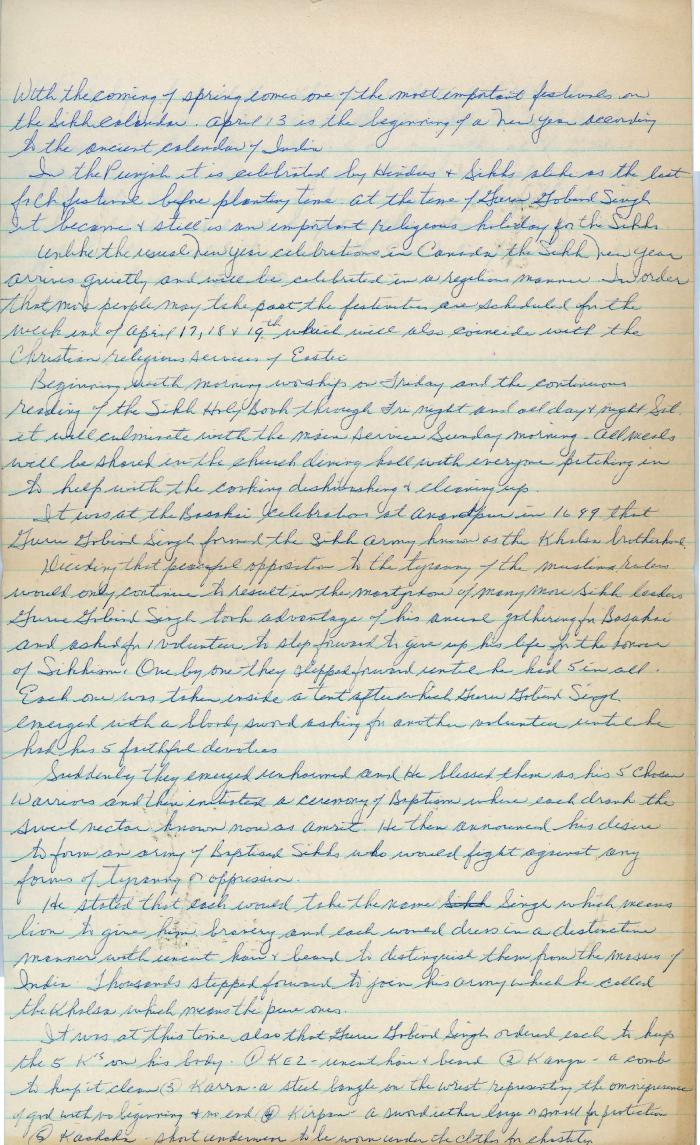 With the coming of spring comes one of the most important festivals on
the Sikh calendar. April 13 is the beginning of a New Year according
to the ancient calendar of India
In the Punjab it is celebrated by Hindus & Sikhs alike as the last
festival before planting time at the time of Guru Gobind Singh
it became & still is an important religious holiday for the Sikhs.
Unlike the usual New Year celebrations in Canada the Sikh New Year
arrives quietly and will be celebrated in a manner. In order
that more people may take part the festivities are scheduled for the
week end of April 17, 18 & 19th which will also coincide with the
Christian religious services of Easter
Beginning with morning worship on Friday and the continuous
reading of the Sikh Holy Book through Fri night and all day & night Sat.
it will culminate with the main service Sunday morning. All meals
will be shared in the church dining hall with everyone pitching in
to help with the cooking dishwashing & cleaning up.
It was at the Basakai celebration at Anandpur in 1699 that
Guru Gobind Singh formed the Sikh Army known as the Khalsa brotherhood.
Deciding that peaceful opposition to the tyranny of the muslims rulers
would only continue to result in the martyrdom of many more Sikh leaders
Guru Gobind Singh took advantage of his annual gathering for Basakai
and asked for 1 volunteer to step forward to give up his life for the honour
of Sikhism. One by one they stepped forward until he had 5 in all.
Each one was taken inside a tent after which Guru Gobind Singh
emerged with a bloody sword asking for another volunteer until he
had his 5 faithful devotees
Suddenly they emerged unharmed and He blessed them as his 5 Chosen
Warriors and then initiated a ceremony of Baptism where each drank the
sweet nectar known now as amrit. He then announced his desire
to form an army of Baptised Sikhs who would fight against any
forms of tyranny or oppression.
He stated that each would take the name Sikh Singh which means
lion to give him bravery and each would dress in a distinctive
manner with uncut hair & beard to distinguish them from the masses of
India. Thousands stepped forward to join his army which he called
the Khalsa which means the pure ones.
It was at this time also that Guru Gobind Singh ordered each to keep
the 5 K's on his body. ① KEZ - uncut hair & beard ② Kanga - a comb
to keep it clean ③ Karra - a steel bangle on the wrist representing the omnipresence
of god with no beginning & no end ④ Kirpan - a sword either large or small for protection
⑤ - short underwear to be worn under the cloths for chastity